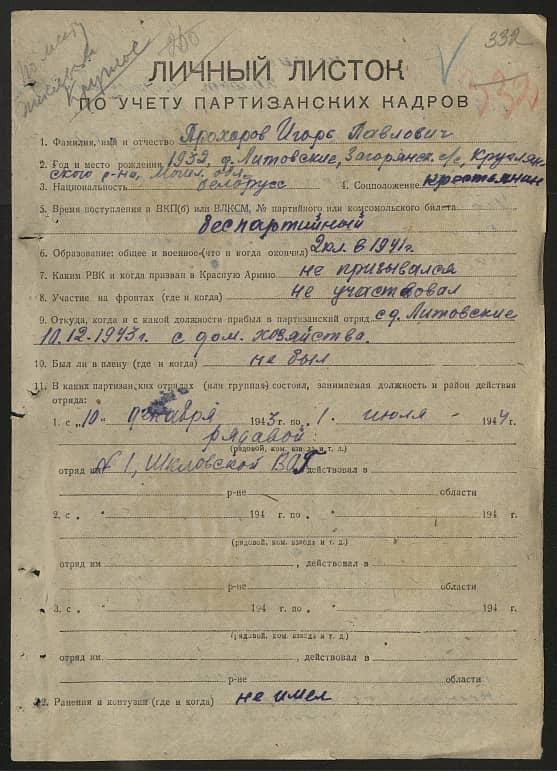 По месту
Круглое
255
332
332
ЛИЧНЫЙ ЛИСТОК
ПО УЧЕТУ ПАРТИЗАНСКИХ КАДРОВ
1. Фамилия, имя и отчество Прохоров Игорь Павлович
2. Год и место рождения 1932, д. Литовские, Загорянск. с/с, Круглян-
ского р-на, Могил. обл.
3. Национальность белорусс 4. Соцположение крестьянин
5. Время поступления в ВКП(б) или ВЛКСМ, № партийного или комсомольского билета
беспартийный
6. Образование: общее и военное (что и когда окончил) 2кл. в 1941г.
7. Каким РВК и когда призван в Красную Армию не призывался
8. Участие на фронтах (где и когда) не участвовал
9. Откуда, когда и с какой должности прибыл в партизанский отряд с д. Литовские
10.12.1943г. с дом. хозяйства.
10. Был ли в плену (где и когда) не был
11. В каких партизанских отрядах (или группах) состоял, занимаемая должность и район действия
отряда:
1. с „10" декабря 1943 г. по „1. июля 1944 г.
рядавой
(рядовой, ком. взвода и т. д.)
отряд им № 1, Шкловской действовал в
р-не области
2. с „ " 194 г. по „ " 194 г.
(рядовой, ком. взвода и т. д.)
отряд им , действовал в
р-не области
3. с „ " 194 г. по „ " 194 г.
(рядовой, ком. взвода и т. д.)
отряд им , действовал в
р-не области
12. Ранения и контузии (где и когда) не имел